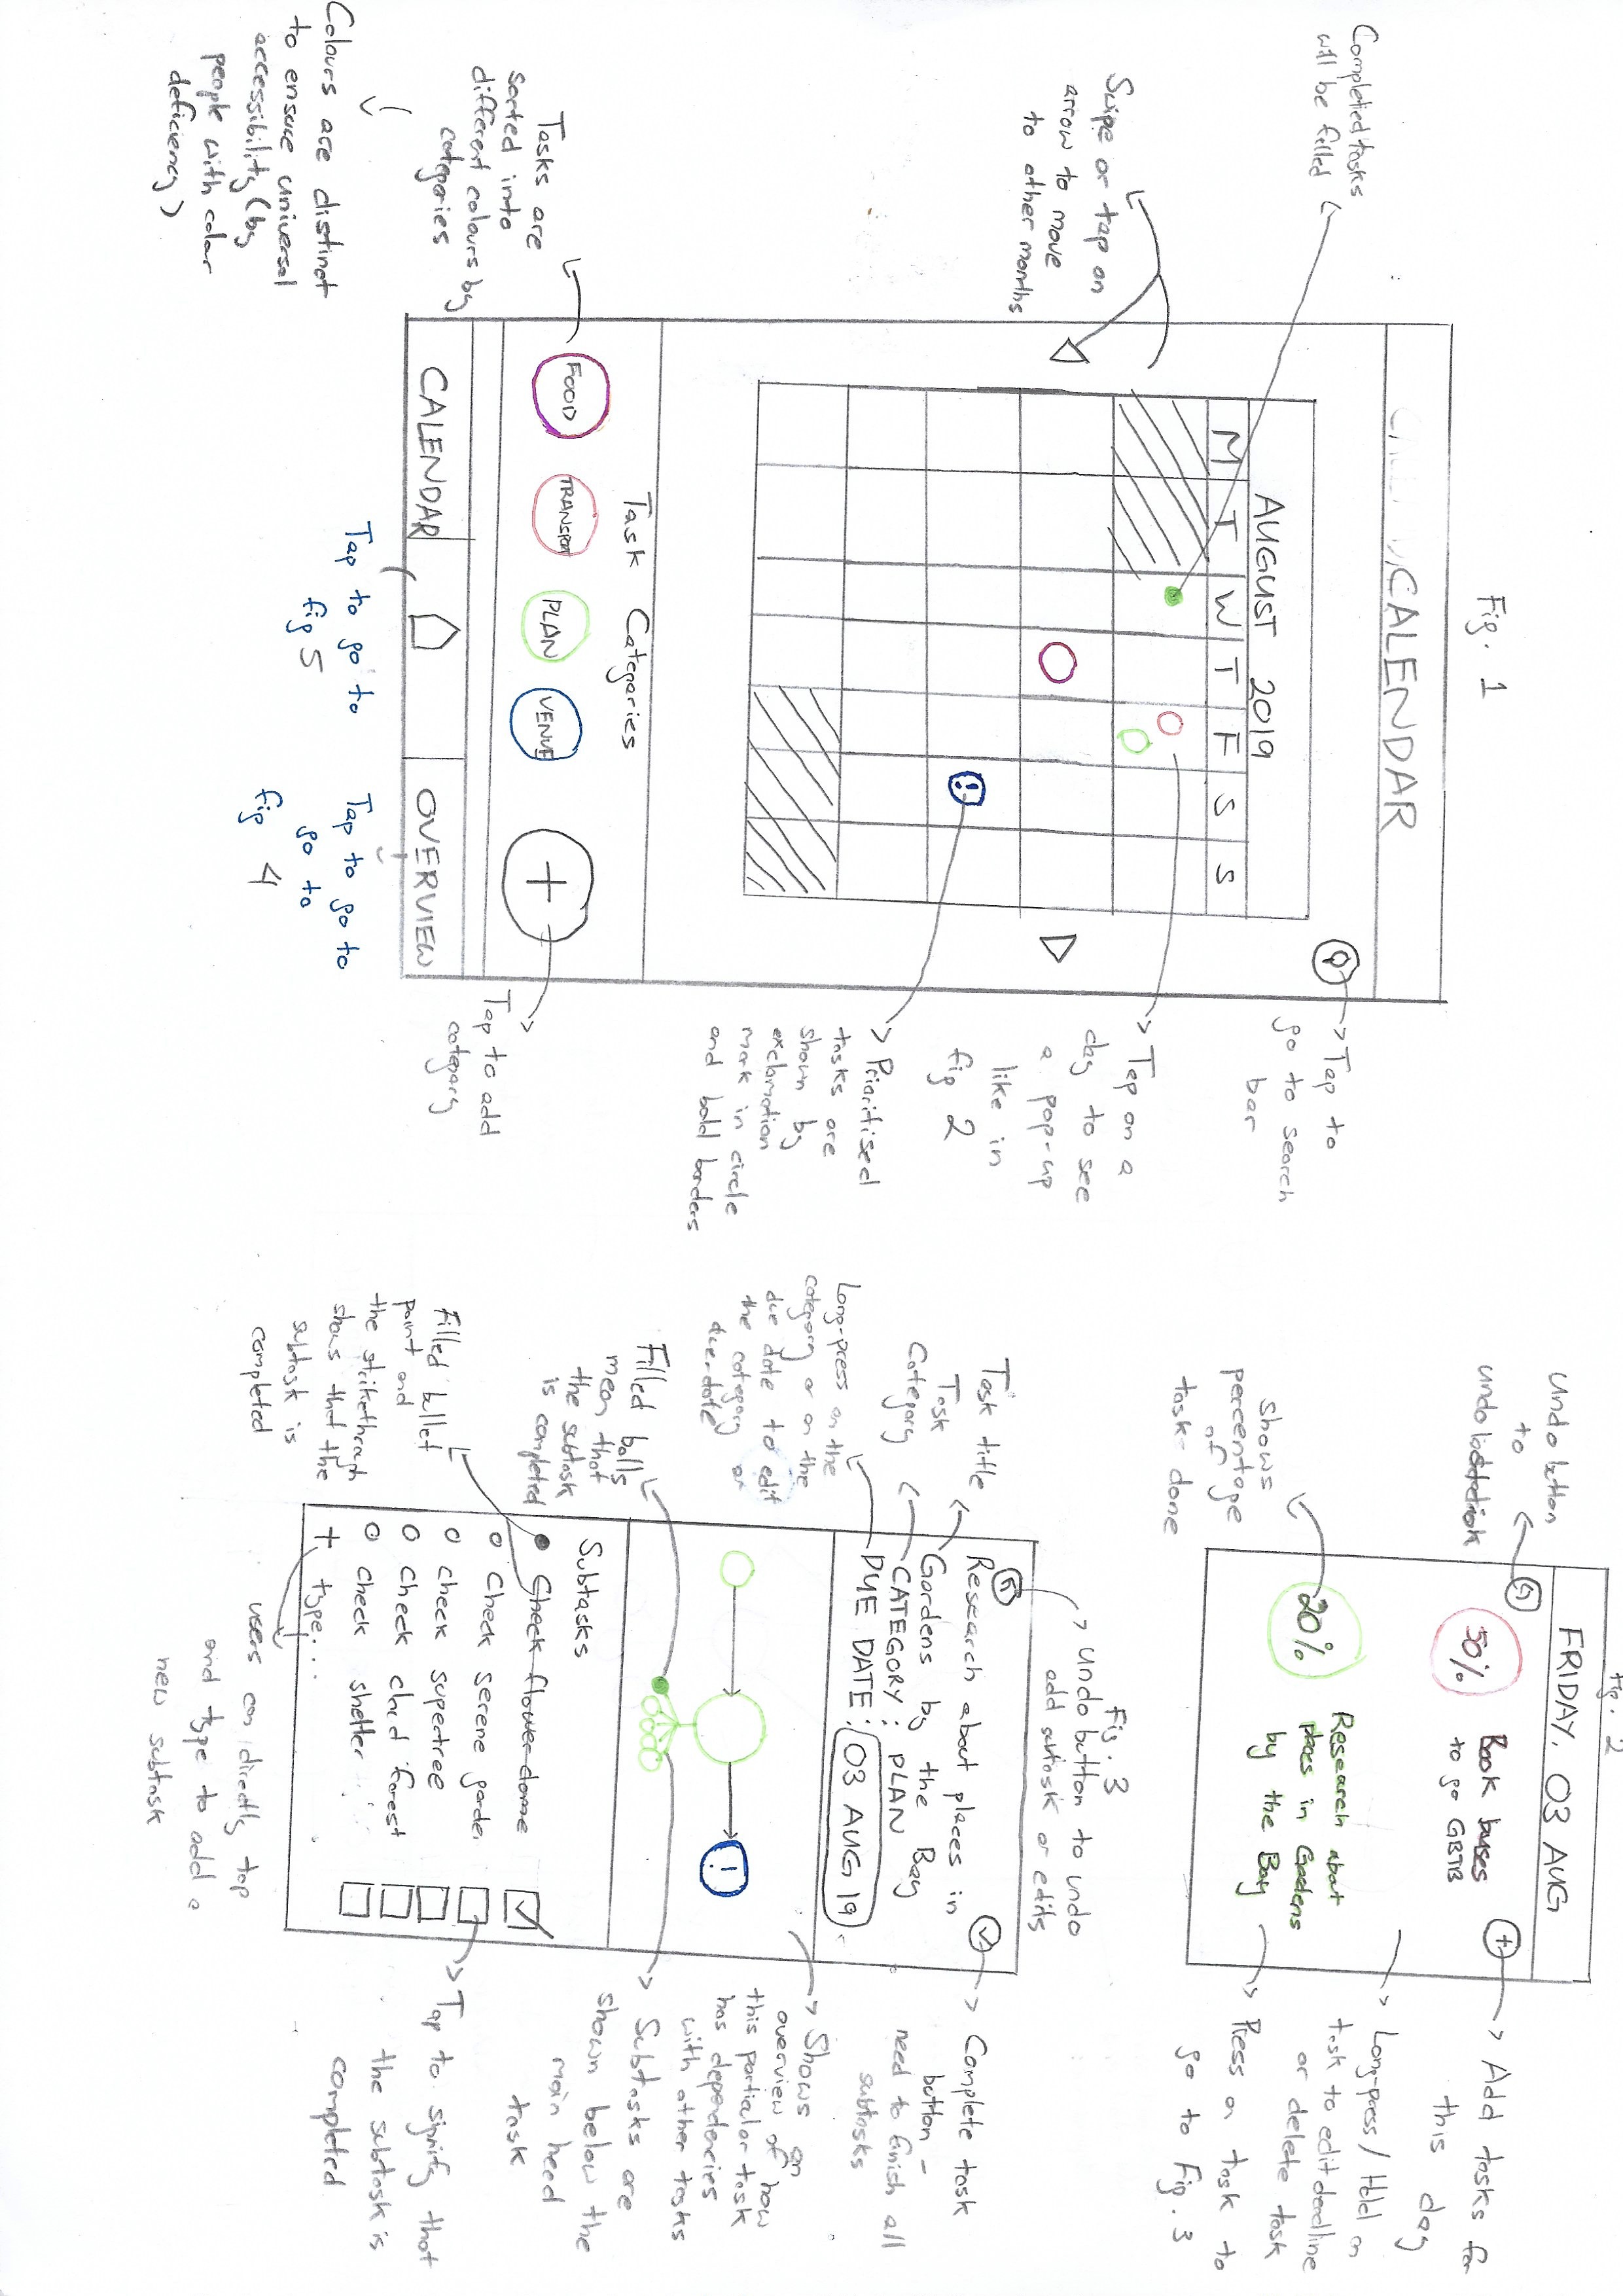 Fig. 1
CALENDAR
Completed tasks
will be filled
Tap to
go to search
bar
AUGUST 2019
M T W T F S S
Swipe or tap on
arrow to move
to other months
Tap on a
day to see
a pop-up
like in
fig 2
!
Prioritised
tasks are
shown by
exclamation
mark in circle
and bold borders
Task Categories
FOOD TRANSPORT PLAN VENUE +
Tasks are
sorted into
different colours by
categories
Tap to add
category
CALENDAR OVERVIEW
Tap to go to
fig 5
Tap to go to
go to
fig 4
Colours are distinct
to ensure universal
accessibility (by
people with color
deficiency)
Fig. 2
FRIDAY, 03 AUG
Undo button
to
undo
50%
Book buses
to go GBTB
+
Add tasks for
this day
Long-press / Hold on
task to edit deadline
or delete task
20%
Research about
places in Gardens
by the Bay
Shows
percentage
of
task done
Press on task to
go to Fig. 3
Fig. 3
undo button to undo
add subtask or edits
Task title
Task
Category
Research about places in
Gardens by the Bay
CATEGORY : PLAN
DUE DATE : 03 AUG 19
Complete task
button -
need to finish all
subtasks
Long-press on the
category or on the
due date to edit
the category or
due-date
Shows an
overview of how
this particular task
has dependencies
with other tasks
!
Filled balls
mean that
the subtask
is completed
Subtasks are
shown below the
main head
task
Subtasks
Check flower dome
Check serene garden
check supertree
check cloud forest
check shelter
+ type...
Filled bullet
point and
the strikethrough
shows that the
subtask is
completed
Tap to signify that
the subtask is
completed
users can directly tap
and type to add a
new subtask